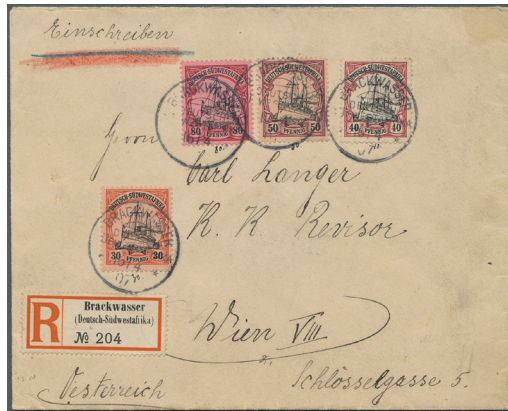 Einschreiben
DEUTSCH-SÜDWESTAFRIKA
80 80
PFENNIG
DEUTSCH-SÜDWESTAFRIKA
50 50
PFENNIG
DEUTSCH-SÜDWESTAFRIKA
40 40
PFENNIG
BRACKWASSER
Herrn
Carl Langer
K. K. Revisor
DEUTSCH-SÜDWESTAFRIKA
30 30
PFENNIG
BRACKWASSER
R
Brackwasser
(Deutsch-Südwestafrika)
№ 204
Wien VIII
Oesterreich
Schlösselgasse 5.